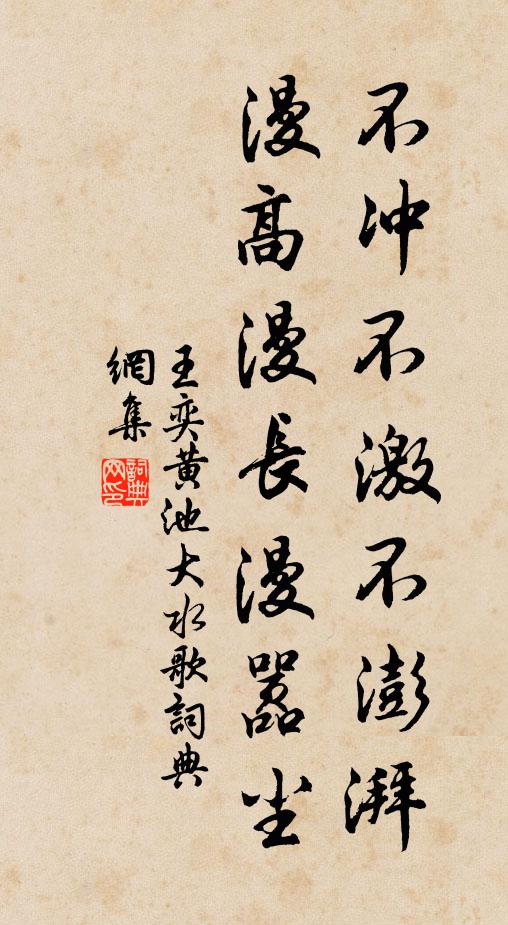 不冲不激不澎湃
漫高漫長漫嚣尘
王奕黄池大水歌詞典
網集
詞典
网印